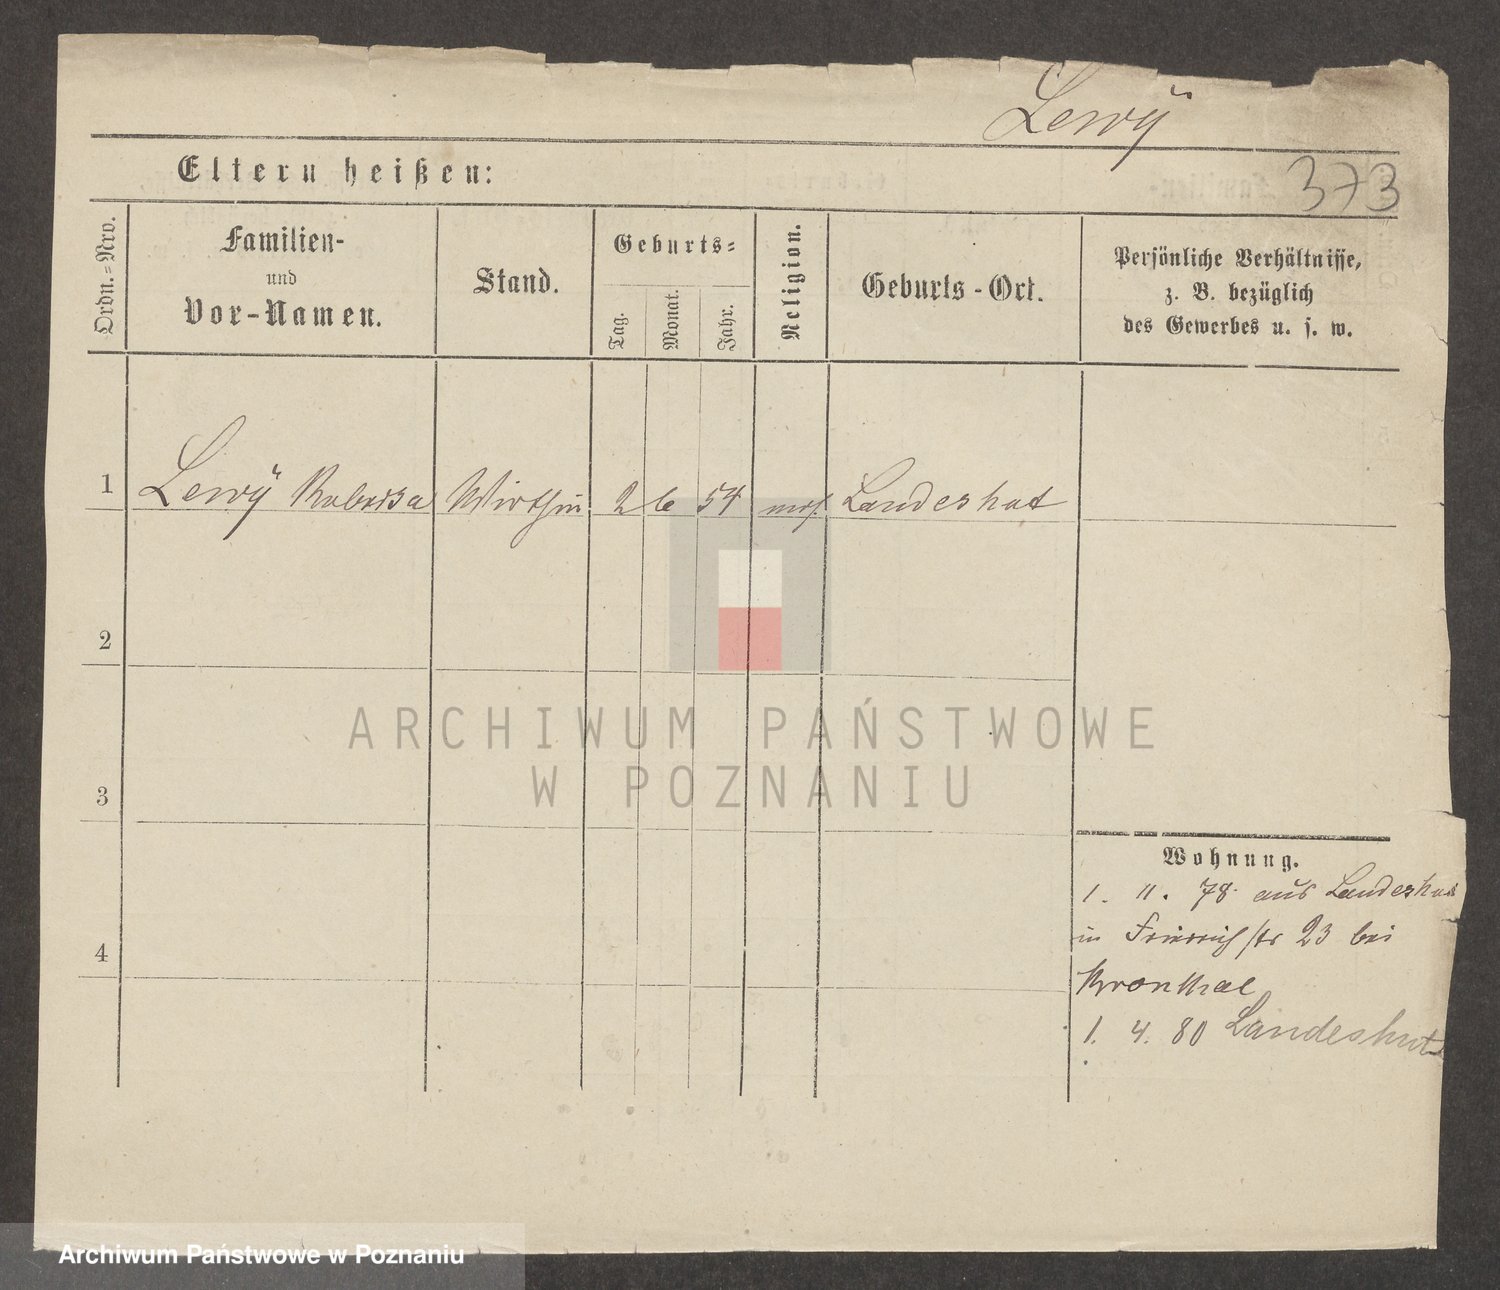 Lewÿ
373
Eltern heißen:
Ordn.=Nro.
Familien-
und
Vor-Namen.
Stand.
Geburts=
Tag.
Monat.
Jahr.
Religion.
Geburts-Ort.
Persönliche Verhältnisse,
z. B. bezüglich
des Gewerbes u. s. w.
1 Lewÿ Wirthin 2 6 54 mos. Landeshut
2
3
4
Wohnung.
1. 11. 78. aus Landeshut
in Friedrichstr 23 bei
Kronthal
1. 4. 80 Landeshut
ARCHIWUM PAŃSTWOWE
W POZNANIU
Archiwum Państwowe w Poznaniu